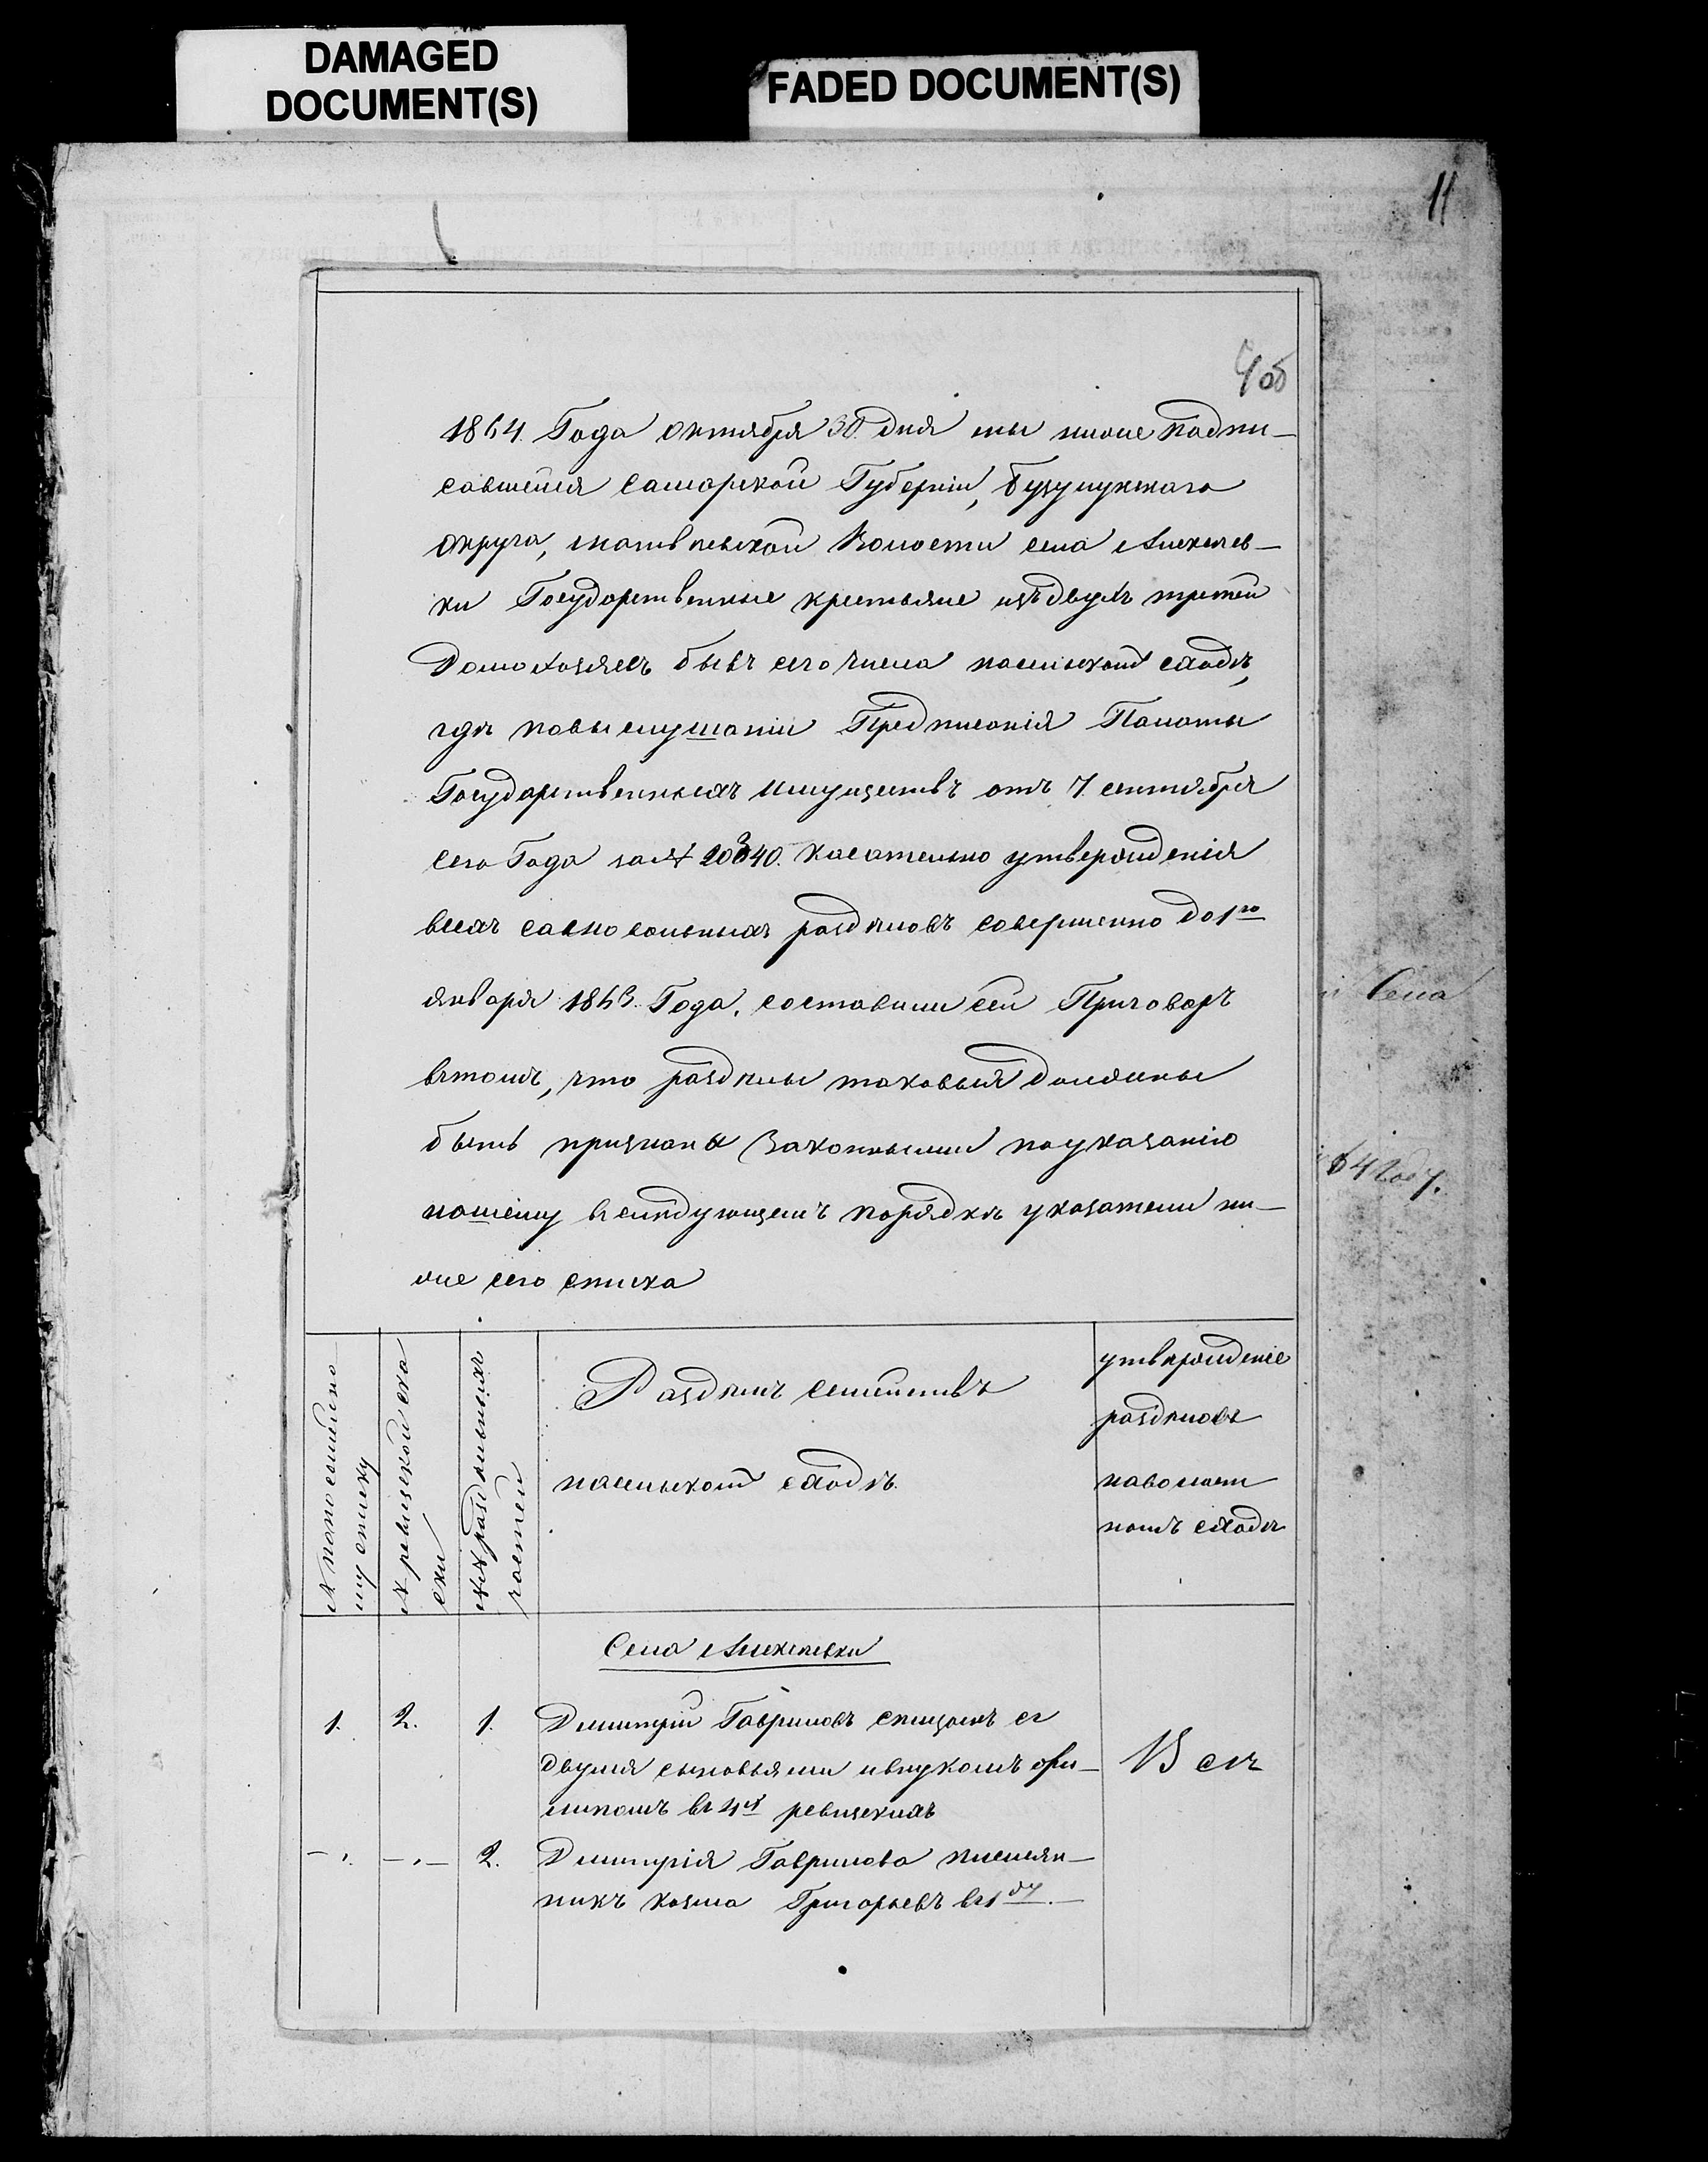 DAMAGED
DOCUMENT(S)
FADED DOCUMENT(S)
11
1864. Года октября 30. дня мы ниже подпи-
савшеися Самарской Губерніи, Бузулукскаго
округа, Матвѣевской Волости села Алексѣев-
ки Государственные крестьяне изъ двухъ третей
Домохозяевъ бывъ сего числа насельскомъ сходѣ,
гдѣ повыслушаніи Предписанія Палаты
Государственныхъ Имуществъ отъ 7. сентября
сего Года за № 20340. касательно утвержденія
всехъ самовольныхъ раздѣловъ совершенно до 1го
января 1863. Года. составили сей Приговоръ
втомъ, что раздѣлы таковыя должны
быть признаны Законными поуказанію
нашему вслѣдующемъ порядкѣ указатели ни-
же сего списка
№ попосемейно
му списку
№ ревизской ска
ски
№№ раздѣльныхъ
частей
Раздѣлъ семействъ
насельскомъ сходѣ.
утвержденіе
раздѣловъ
наволост
номъ сходѣ
Села Алексѣевки
1. 2. 1. Димитрій Гавриловъ сотцомъ съ
двумя сыновьями ивнукомъ
въ 4х ревизскихъ
Всѣ
-"- -"- 2. Димитрія Гаврилова племян-
никъ Козма Григорьевъ в1ду.
Села
64 году.